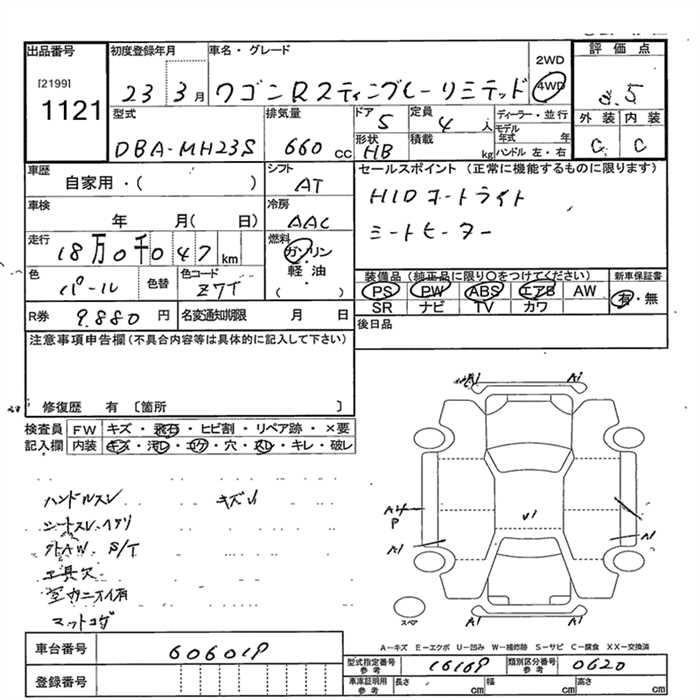 出品番号
[2199]
1121
初度登録年月
23 3月
車名・グレード
ワゴンRスティングレーリミテッド
2WD
4WD
評価点
3.5
外装 内装
C C
型式
DBA-MH23S
排気量
660 cc
ドア
5
定員
4 人
形状
HB
積載
kg
ディーラー・並行
モデル年式 年
ハンドル 左・右
車歴
自家用・( )
シフト
AT
セールスポイント (正常に機能するものに限ります)
HIDオートライト
シートヒーター
車検
年 月( 日)
冷房
AAC
走行
18万0千047 km
燃料
ガソリン
軽油
( )
色
パール
色替
色コード
Z7T
装備品 (純正品に限り○をつけてください)
PS PW ABS エアB AW
SR ナビ TV カワ
新車保証書
有・無
R券
9.880 円
名変通知期限 月 日
後日品
注意事項申告欄 (不具合内容等は具体的に記入して下さい)
修復歴 有 〔箇所 〕
検査員記入欄
FW キズ・飛石・ヒビ割・リペア跡・×要
内装 キズ・汚レ・コゲ・穴・スレ・キレ・破レ
ハンドルスレ キズ小
シートスレ・ヘタリ
外AW S/T
工具欠
マットコゲ
A1 A1
A4
P
U1
A1 A1
A1 A1
スペア
A-キズ E-エクボ U-凹み W-補修跡 S-サビ C-腐食 XX-交換済
車台番号
606019
登録番号
型式指定番号 参考
16169
類別区分番号 参考
0620
車庫証明用 参考
長さ cm 幅 cm 高さ cm